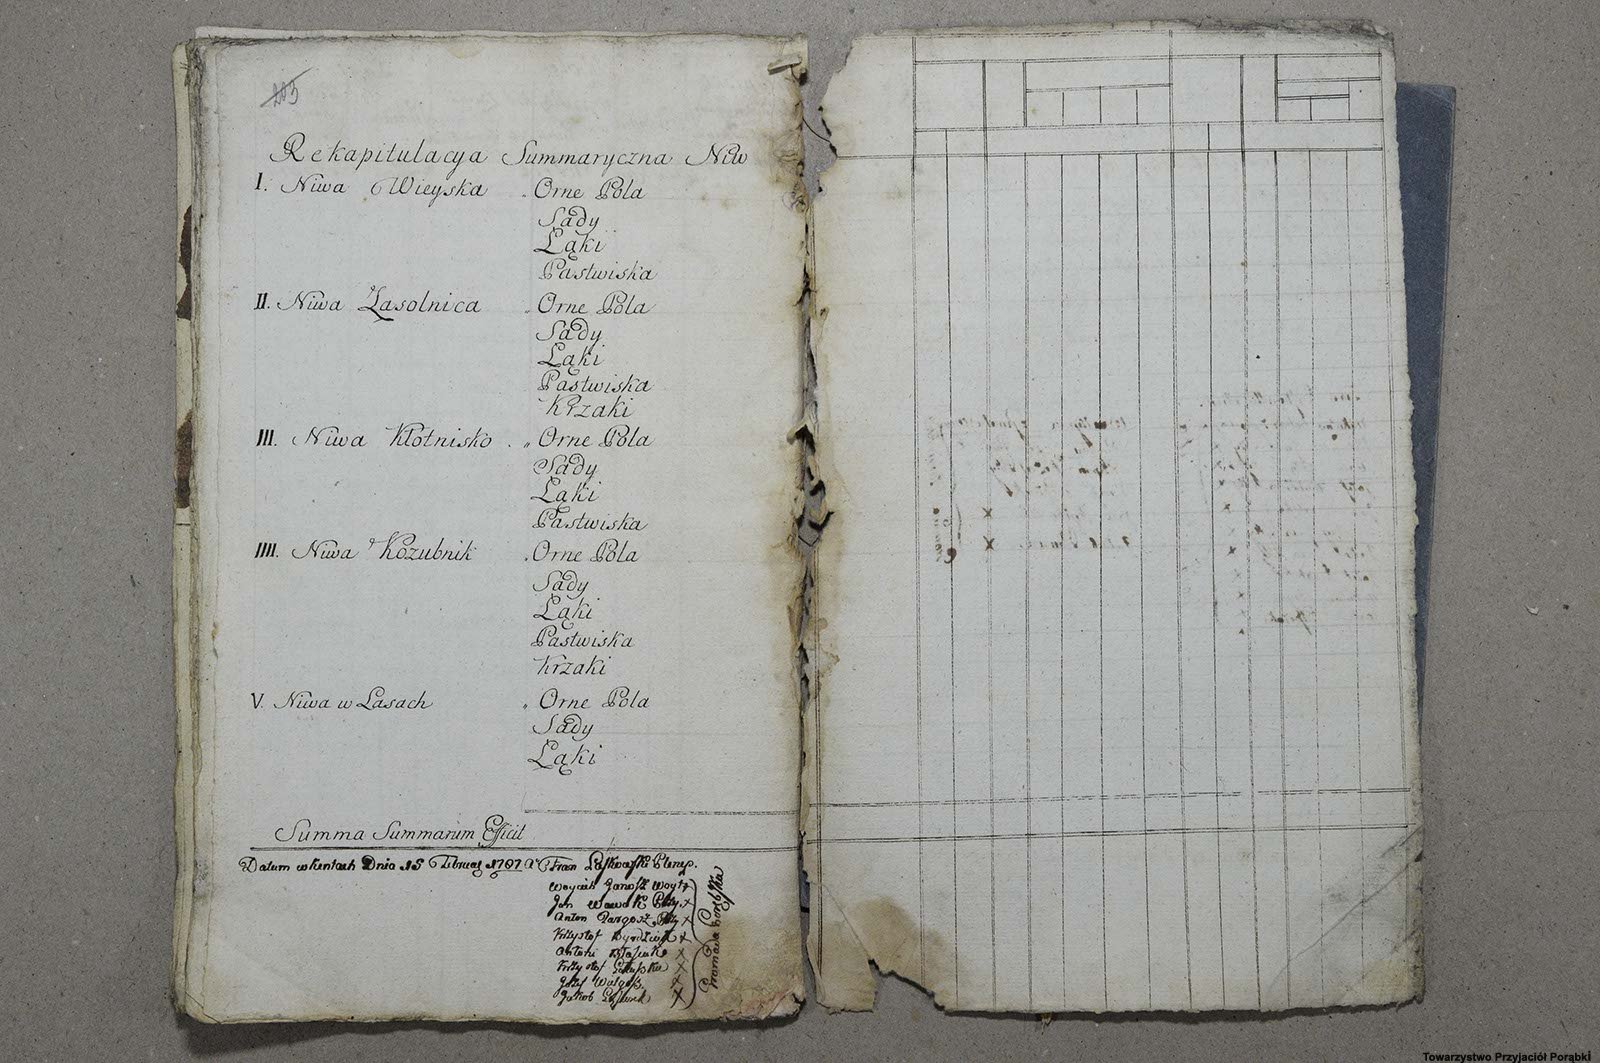 205
Rekapitulacya Summaryczna Niw
I. Niwa Wieyska „ Orne Pola
Sady
Łąki
Pastwiska
II. Niwa Zasolnica „ Orne Pola
Sady
Łąki
Pastwiska
Krzaki
III. Niwa Kłotnisko „ Orne Pola
Sady
Łąki
Pastwiska
IIII. Niwa Kozubnik „ Orne Pola
Sady
Łąki
Pastwiska
Krzaki
V. Niwa w Lasach „ Orne Pola
Sady
Łąki
Summa Summarum Efficit
Datum w Kentach Dnia 15 Februar 1787
Woyciech Janosz Woyt
Jan Wawak Przy. x
Anton Przy x
Krzysztof x
Antoni x
Krzysztof x
Jozef x
Jakob x
Gromada Porąbska
Towarzystwo Przyjaciół Porąbki